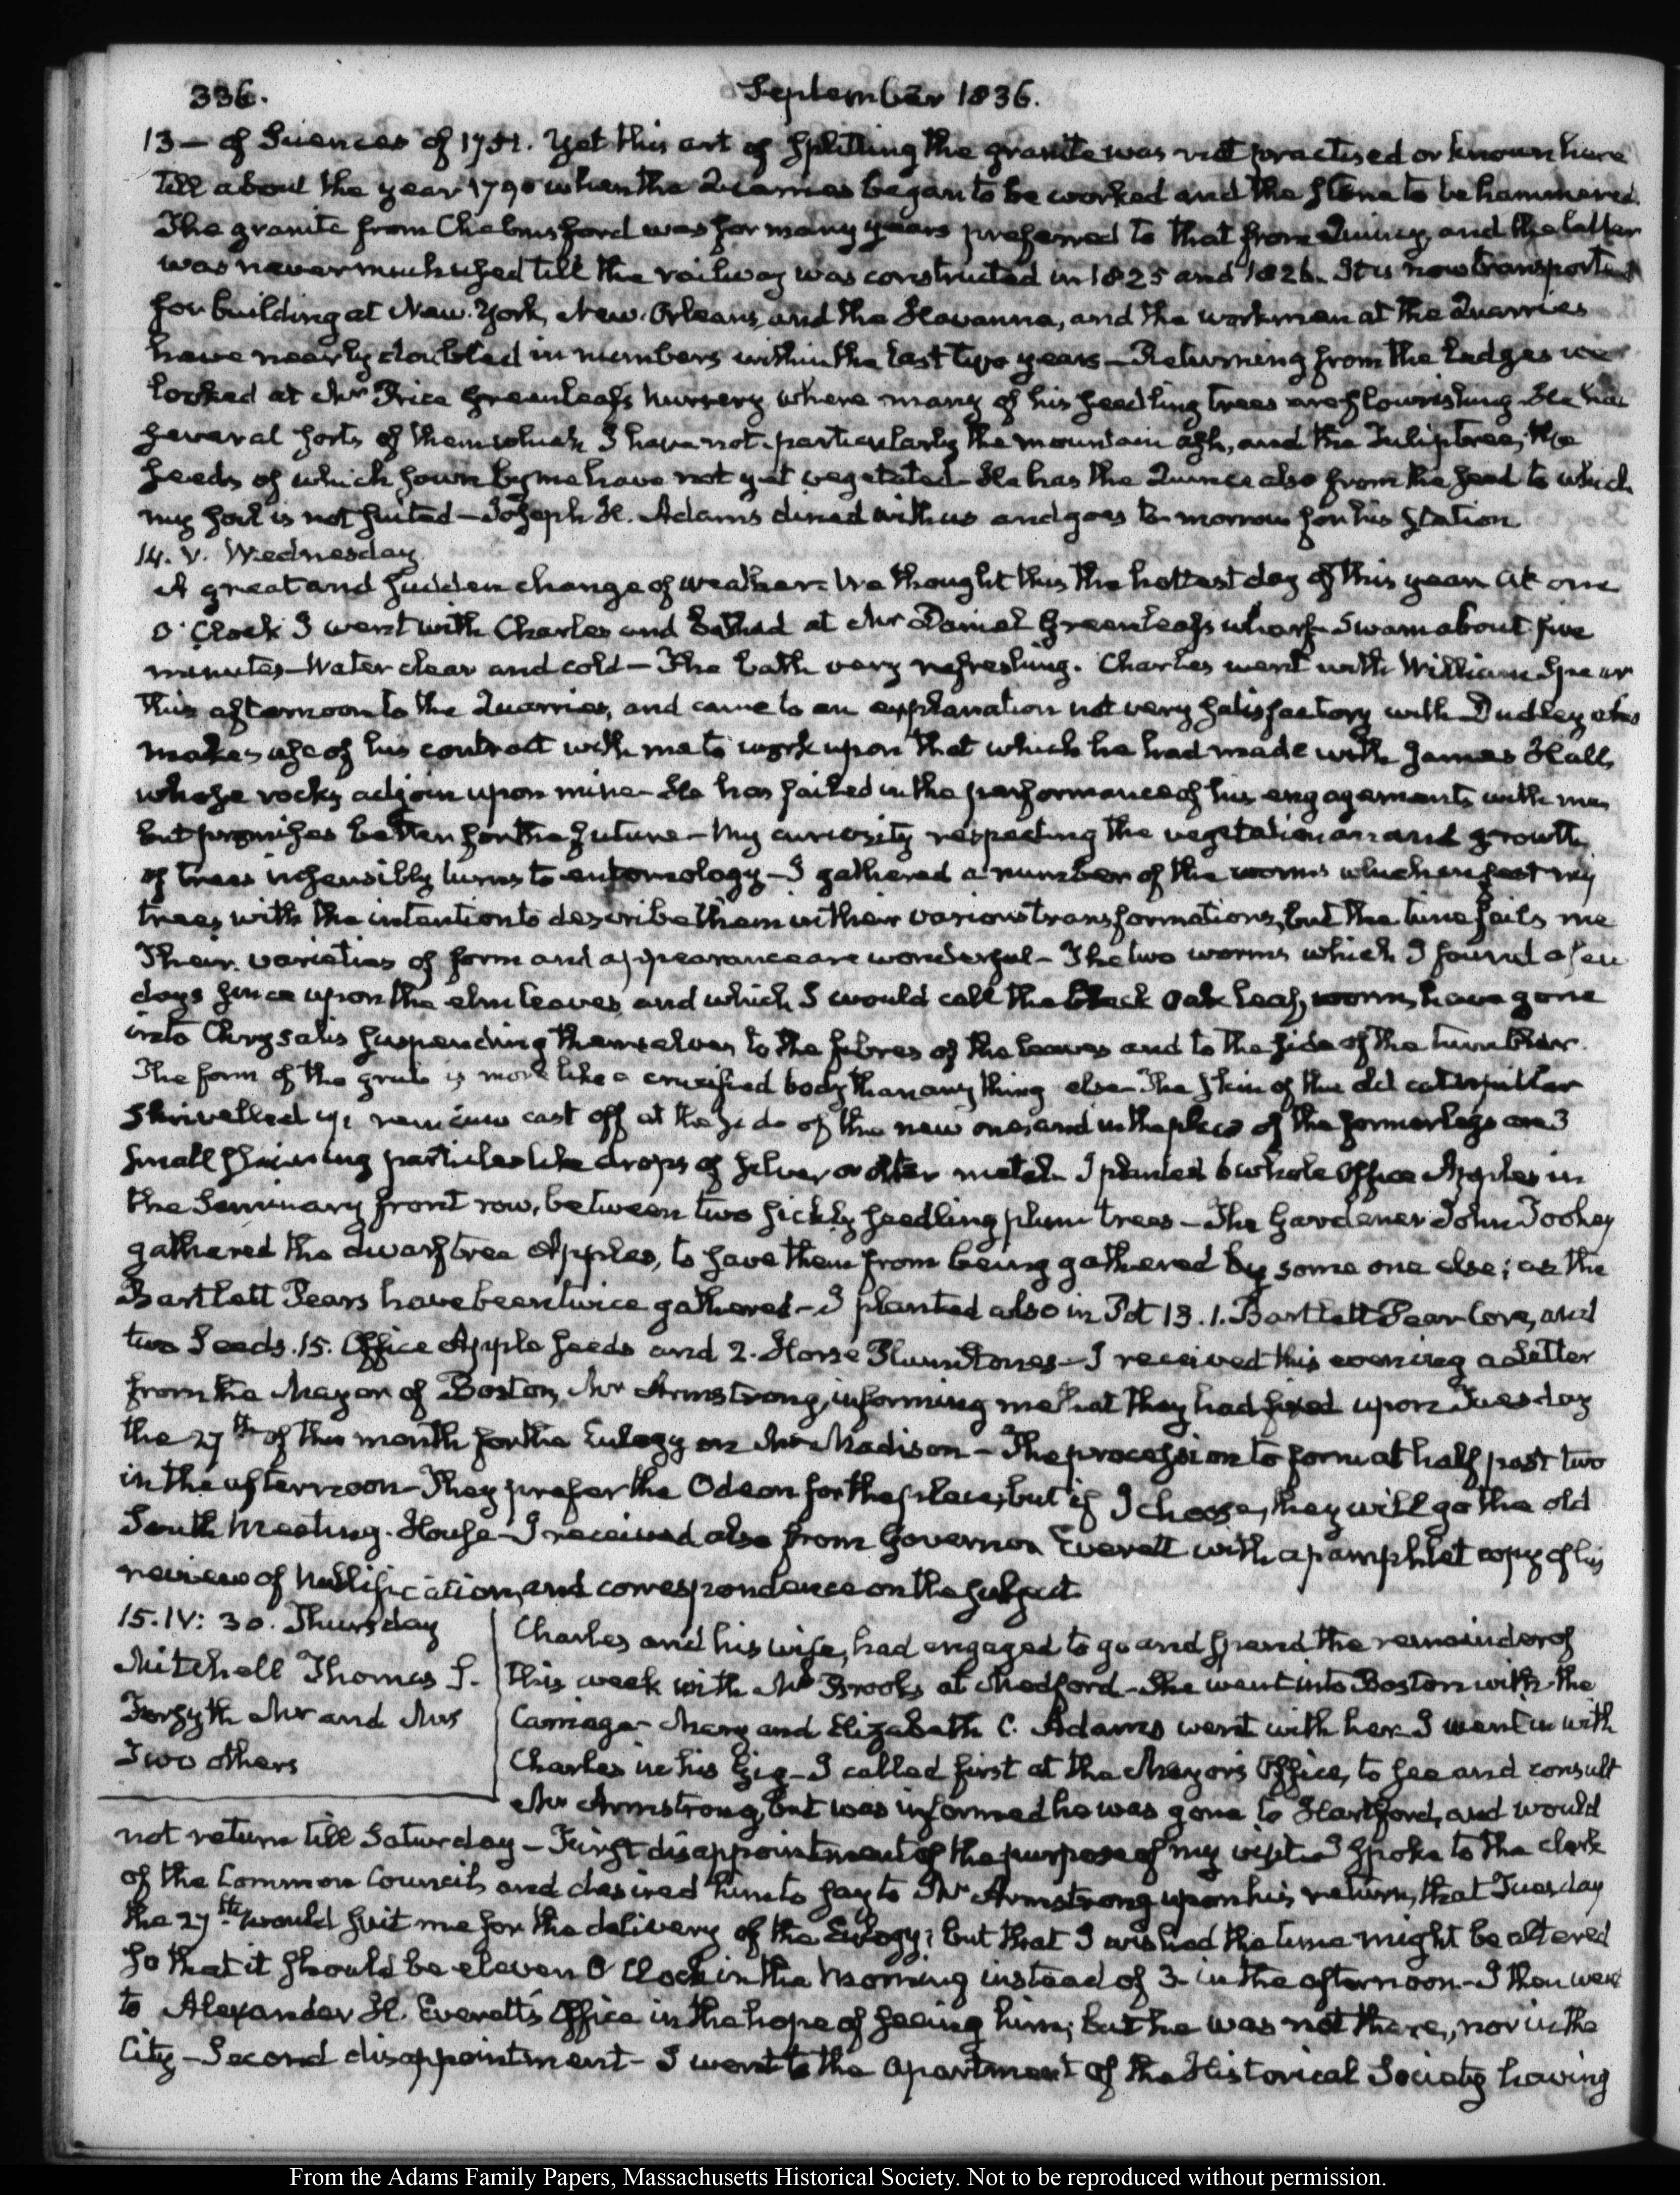 336.
September 1836.
13 — of Sciences of 1781. Yet this art of splitting the granite was not practised or known here
till about the year 1790 when the Quarries began to be worked and the stone to be hammered.
The granite from Chelmsford was for many years preferred to that from Quincy, and the latter
was never much used till the railway was constructed in 1825 and 1826. It is now transported
for building at New-York, New-Orleans, and the Havanna, and the workmen at the Quarries
have nearly doubled in numbers within the last two years — Returning from the ledges we
looked at Mr Price Greenleaf's nursery where many of his seedling trees are flourishing. He has
several sorts of them which I have not — particularly the mountain ash, and the Tulip tree, the
seeds of which sown by me have not yet vegetated — He has the Quince also from the seed to which
my soil is not suited — Joseph H. Adams dined with us and goes to-morrow for his station
14. V. Wednesday
A great and sudden change of weather. We thought this the hottest day of this year. At one
O'Clock I went with Charles and bathed at Mr Daniel Greenleaf's wharf — Swam about five
minutes — Water clear and cold — The bath very refreshing. Charles went with William Spear
this afternoon to the Quarries, and came to an explanation not very satisfactory with Dudley who
makes use of his contract with me to work upon that which he had made with James Hall,
whose rocks adjoin upon mine — He has failed in the performance of his engagements with me,
but promises better for the future — My curiosity respecting the vegetation and growth
of trees insensibly turns to entomology — I gathered a number of the worms which infest my
trees with the intention to describe them in their various transformations, but the time fails me
Their varieties of form and appearance are wonderful — The two worms which I found a few
days since upon the elm leaves, and which I would call the black oak leaf, worm, have gone
into Chrysalis suspending themselves to the fibres of the leaves and to the side of the tumbler.
The form of the grub is more like a crucified body than any thing else — The skin of the old caterpillar
shrivelled up remains cast off at the side of the new one, and in the place of the former legs are 3
small shining particles like drops of silver or other metal. I planted 6 whole Office Apples in
the Seminary front row, between two sickly seedling plum trees — The Gardener John Toohey
gathered the dwarf tree Apples, to save them from being gathered by some one else; as the
Bartlett Pears have been twice gathered — I planted also in Pot 13. 1. Bartlett Pear Core, and
two Seeds. 15. Office Apple seeds and 2. Horse Plum Stones — I received this evening a Letter
from the Mayor of Boston, Mr Armstrong, informing me that they had fixed upon Tuesday
the 27th of this month for the Eulogy on Mr Madison — The procession to form at half past two
in the afternoon — They prefer the Odeon for the place, but if I choose, they will go the old
South Meeting-House — I received also from Governor Everett with a pamphlet copy of his
review of Nullification, and correspondence on the subject.
15. IV: 30. Thursday
Mitchell Thomas S.
Forsyth Mr and Mrs
Two others
Charles and his wife, had engaged to go and spend the remainder of
this week with Mr Brooks at Medford — She went into Boston with the
Carriage — Mary and Elizabeth C. Adams went with her. I went in with
Charles in his Gig — I called first at the Mayor's Office, to see and consult
Mr Armstrong, but was informed he was gone to Hartford, and would
not return till Saturday — First disappointment of the purpose of my visit — I spoke to the clerk
of the Common Council, and desired him to say to Mr Armstrong upon his return, that Tuesday
the 27th would suit me for the delivery of the Eulogy; but that I wished the time might be altered
so that it should be eleven O'Clock in the Morning instead of 3 in the afternoon — I then went
to Alexander H. Everett's Office in the hope of seeing him; but he was not there, nor in the
City — Second disappointment — I went to the apartment of the Historical Society having
From the Adams Family Papers, Massachusetts Historical Society. Not to be reproduced without permission.